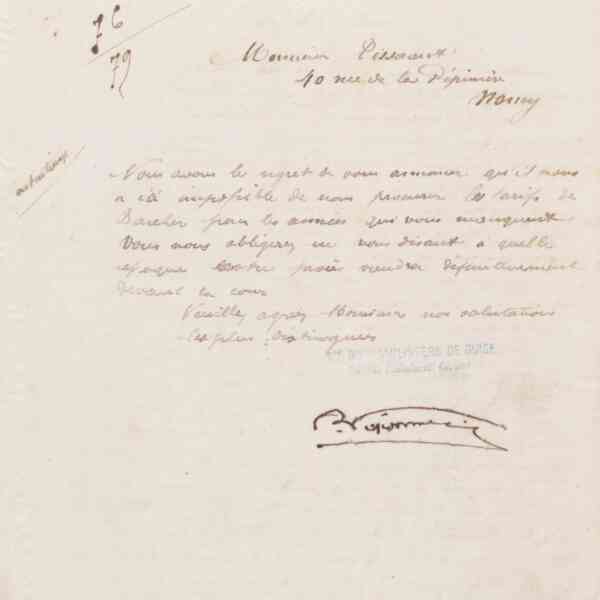 76
79
Monsieur Pissaux
40 rue de la Pépinière
Nancy
Nous avons le regret de vous annoncer qu'il nous
a été impossible de nous procurer les tarifs de
pour les années qui vous manquent
Vous nous obligerez en nous disant à quelle
époque procès viendra définitivement
devant la cour
Veuillez agréer Monsieur nos salutations
les plus distinguées
DE GUISE